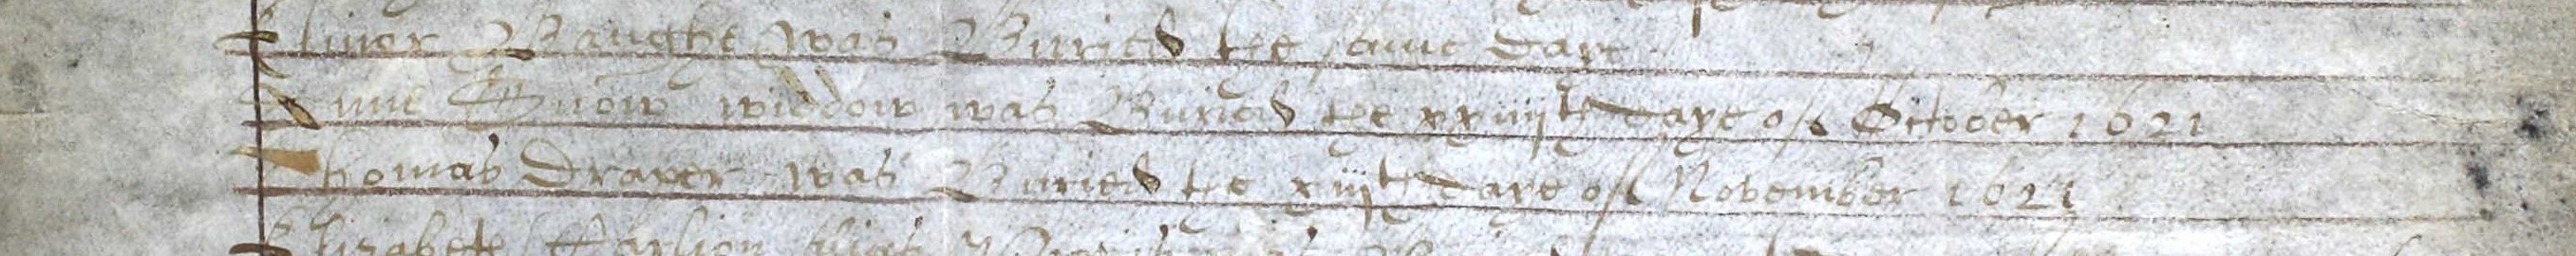 Elinor Baughe was Buried the same daye
Anne Snow widdow was Buried the xxiiijth daye off October 1621
Thomas Draper was Buried the xiijth daye off November 1621
Elizabeth